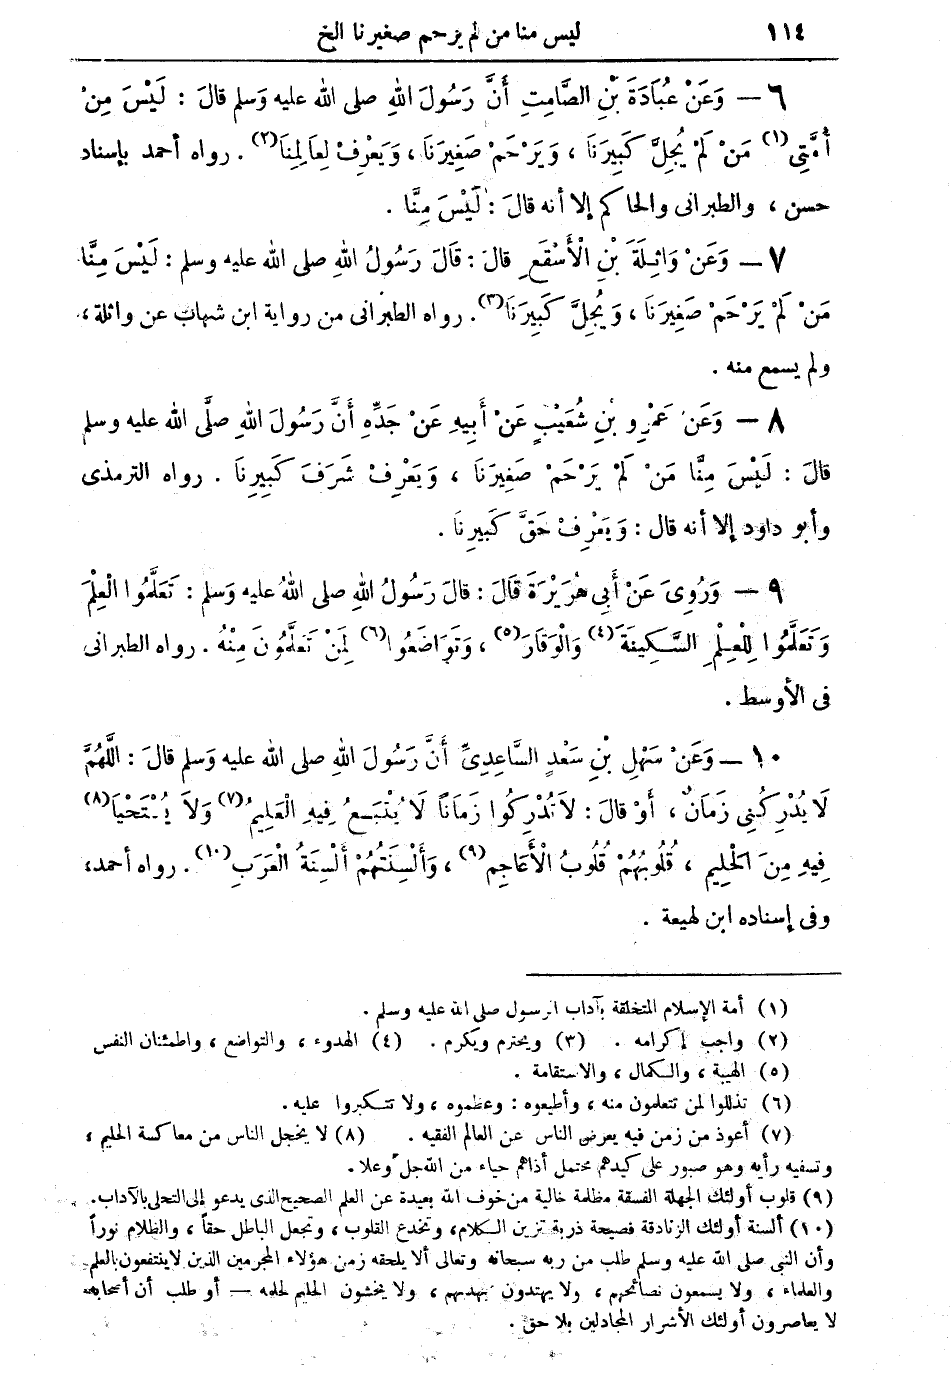 ١١٤ ليس منا من لم يرحم صغيرنا الخ
٦ — وَعَنْ عُبَادَةَ بْنِ الصَّامِتِ أَنَّ رَسُولَ اللهِ صلى الله عليه وَسلم قالَ : لَيْسَ مِنْ
أُمَّتِى(١) مَنْ لَمْ يُجِلَّ كَبِيرَنَا ، وَيَرْحَمْ صَغِيرَنَا ، وَيَعْرِفْ لِعَالِمِنَا(٢) . رواه أحمد بإسناد
حسن ، والطبرانى والحاكم إلا أنه قالَ : لَيْسَ مِنَّا .
٧ — وَعَنْ وَاثِلَةَ بْنِ الْأَسْقَعِ قالَ : قَالَ رَسُولُ اللهِ صلى الله عليه وسلم : لَيْسَ مِنَّا
مَنْ لَمْ يَرْحَمْ صَغِيرَنَا ، وَيُجِلَّ كَبِيرَنَا(٣). رواه الطبرانى من رواية ابن شهاب عن واثلة ،
ولم يسمع منه .
٨ — وَعَنْ عَمْرِو بْنِ شُعَيْبٍ عَنْ أَبِيهِ عَنْ جَدِّهِ أَنَّ رَسُولَ اللهِ صلَّى الله عليه وسلم
قالَ : لَيْسَ مِنَّا مَنْ لَمْ يَرْحَمْ صَغِيرَنَا ، وَيَعْرِفْ شَرَفَ كَبِيرِنَا . رواه الترمذى
وأبو داود إلا أنه قال : وَيَعْرِفْ حَقَّ كَبِيرِنَا .
٩ — وَرُوِىَ عَنْ أَبِى هُرَيْرَةَ قَالَ : قالَ رَسُولُ اللهِ صلى اللهُ عليه وَسلم : تَعَلَّمُوا الْعِلْمَ
وَتَعَلَّمُوا لِلْعِلْمِ السَّكِينَةَ(٤) وَالْوَقَارَ(٥) ، وَتَوَاضَعُوا(٦) لِمَنْ تَعَلَّمُونَ مِنْهُ . رواه الطبرانى
فى الأوسط .
١٠ — وَعَنْ سَهْلِ بْنِ سَعْدٍ السَّاعِدِىِّ أَنَّ رَسُولَ اللهِ صلى الله عليه وَسلم قالَ : اللَّهُمَّ
لَا يُدْرِكُنِى زَمَانٌ ، أَوْ قالَ : لَا تُدْرِكُوا زَمَانًا لَا يُتْبَعُ فِيهِ الْعَلِيمُ(٧) وَلَا يُسْتَحْيَا(٨)
فِيهِ مِنَ الْحَلِيمِ ، قُلُوبُهُمْ قُلُوبُ الْأَعَاجِمِ(٩) ، وَأَلْسِنَتُهُمْ أَلْسِنَةُ الْعَرَبِ(١٠) . رواه أحمد،
وفى إسناده ابن لهيعة .
(١) أمة الإسلام المتخلقة بآداب الرسول صلى الله عليه وسلم .
(٢) واجب إكرامه . (٣) ويحترم ويكرم . (٤) الهدوء ، والتواضع ، واطمئنان النفس
(٥) الهيبة ، والكمال ، والاستقامة .
(٦) تذللوا لمن تتعلمون منه ، وأطيعوه : وعظموه ، ولا تتكبروا عليه .
(٧) أعوذ من زمن فيه يعرض الناس عن العالم الفقيه . (٨) لا يخجل الناس من معاكسة الحليم ،
وتسفيه رأيه وهو صبور على كيدهم محتمل أذاهم حياء من الله جل وعلا .
(٩) قلوب أولئك الجهلة الفسقة مظلمة خالية من خوف الله بعيدة عن العلم الصحيح الذى يدعو إلى التحلى بالآداب .
(١٠) ألسنة أولئك الزنادقة فصيحة ذربة تزين الكلام ، وتخدع القلوب ، وتجعل الباطل حقاً ، والظلام نوراً
وأن النبى صلى الله عليه وسلم طلب من ربه سبحانه وتعالى ألا يلحقه زمن هؤلاء المجرمين الذين لا ينتفعون بالعلم
والعلماء ، ولا يسمعون نصائحهم ، ولا يهتدون بهديهم ، ولا يخشون الحليم لحلمه — أو طلب أن أصحابه
لا يعاصرون أولئك الأشرار المجادلين بلا حق .